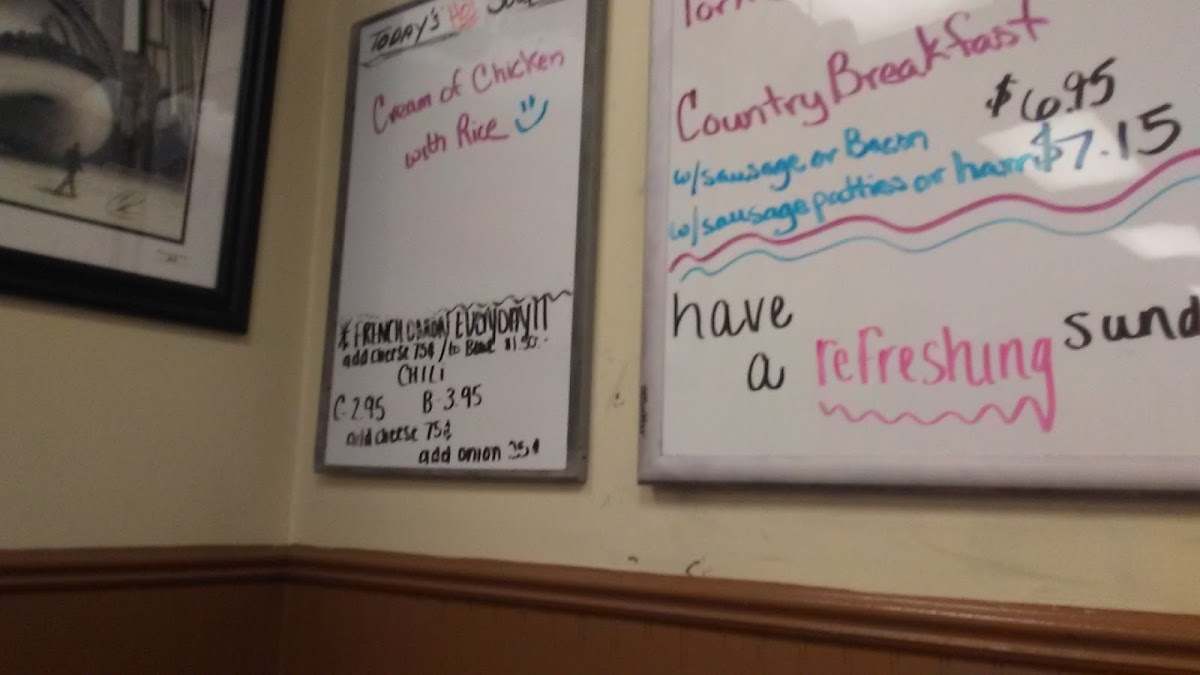 TODAY'S Hot
Cream of Chicken
with Rice
* FRENCH ONION EVERYDAY!!
add cheese 75¢ / to Bowl $1.50
CHILI
C-2.95 B-3.95
add cheese 75¢
add onion 25¢
Country Breakfast
$6.95
w/sausage or Bacon
w/sausage patties or ham $7.15
have
a refreshing sund